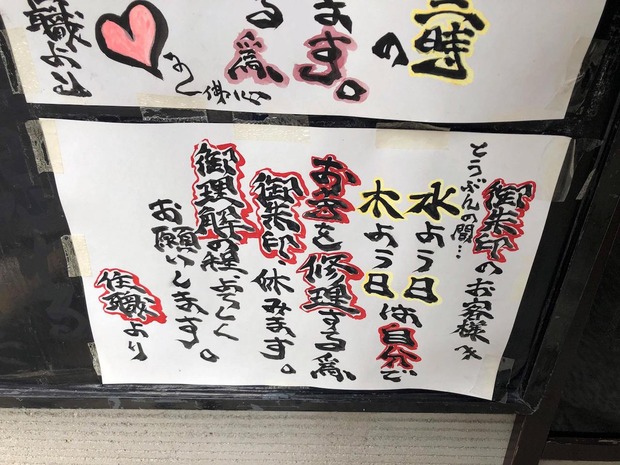 時
の
ます。
る為、
佛心
職より
御朱印のお客様え
とうぶんの間…
水よう日
木よう日は自分で
お寺を修理する為、
御朱印、休みます。
御理解の程よろしく
お願いします。
住職より